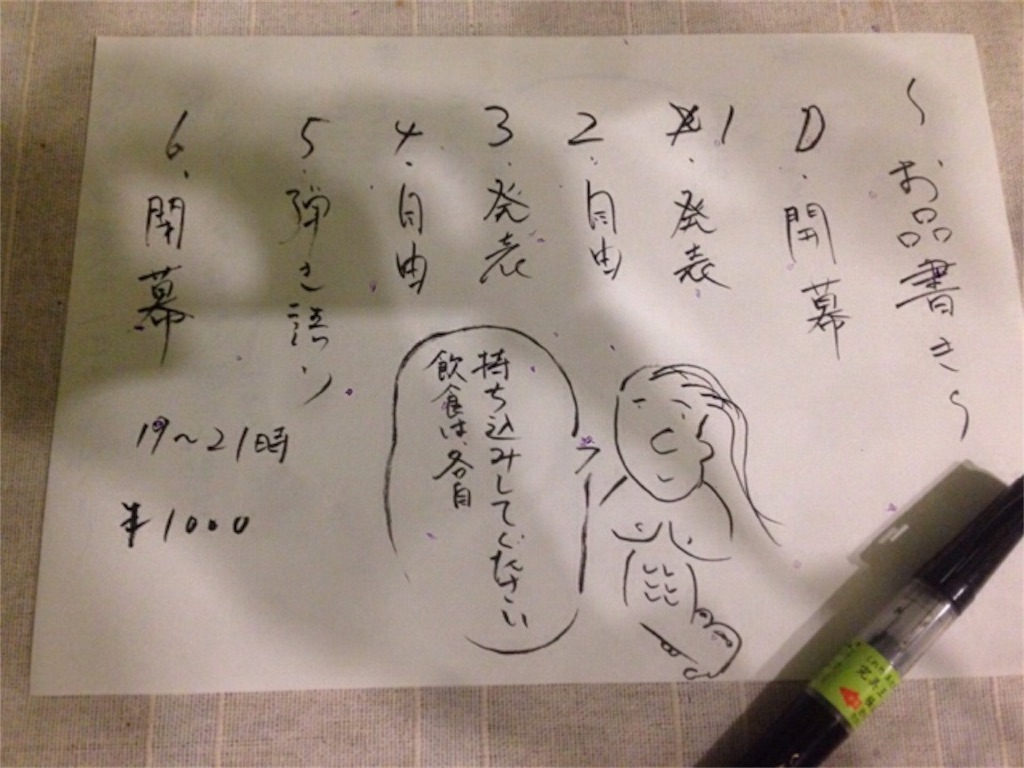 〜お品書き〜
0.開幕
1.発表
2.自由
3.発表
4.自由
5.弾き語り
6.閉幕
19〜21時
¥1000
飲食は、各自
持ち込みしてください